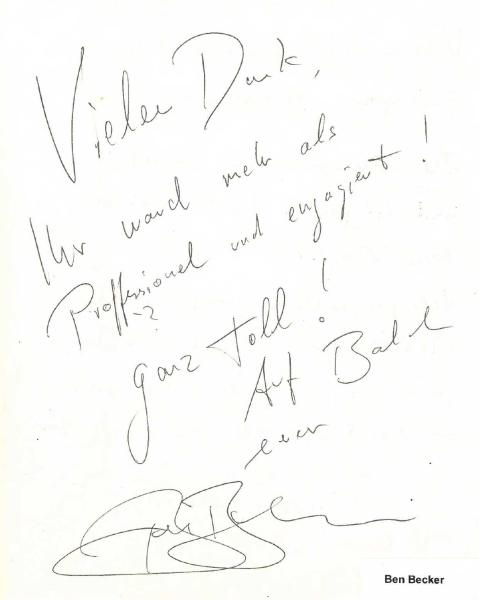 Vielen Dank,
Ihr ward mehr als
Proffessionel und engagiert!
?
ganz Toll!
Auf Bald
euer
Ben Becker